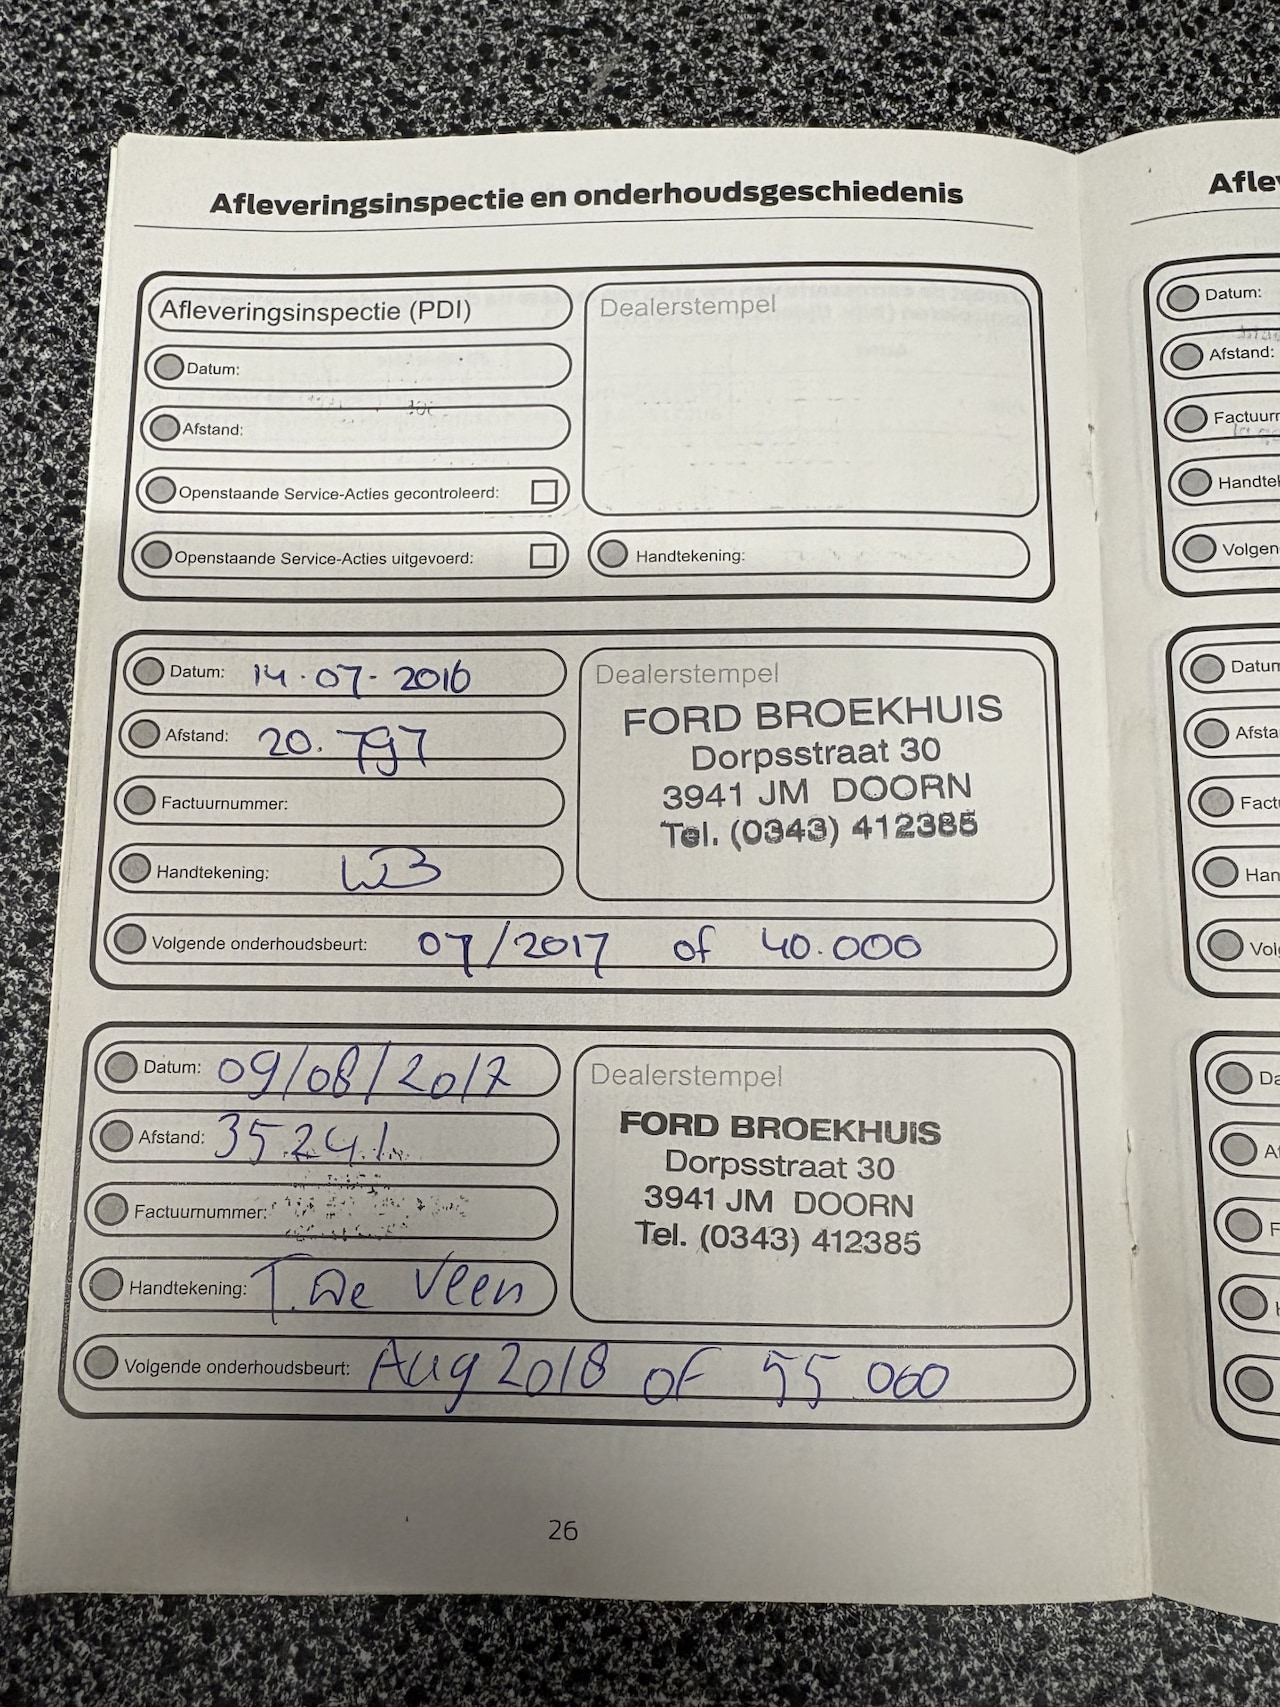 Afleveringsinspectie en onderhoudsgeschiedenis
Afleveringsinspectie (PDI)
Datum:
Afstand:
Openstaande Service-Acties gecontroleerd:
Openstaande Service-Acties uitgevoerd:
Dealerstempel
Handtekening:
Datum: 14-07-2016
Afstand: 20.797
Factuurnummer:
Handtekening: WB
Volgende onderhoudsbeurt: 07/2017 of 40.000
Dealerstempel
FORD BROEKHUIS
Dorpsstraat 30
3941 JM DOORN
Tel. (0343) 412385
Datum: 09/08/2017
Afstand: 35241
Factuurnummer:
Handtekening: T. de Veen
Volgende onderhoudsbeurt: Aug 2018 of 55 000
Dealerstempel
FORD BROEKHUIS
Dorpsstraat 30
3941 JM DOORN
Tel. (0343) 412385
26
Datum:
Afstand: